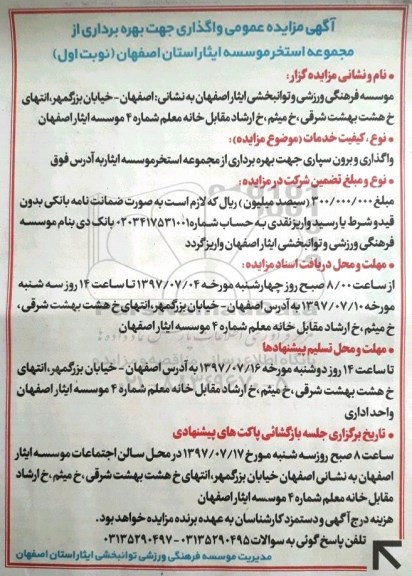 آگهی مزایده عمومی واگذاری جهت بهره برداری از
مجموعه استخر موسسه ایثار استان اصفهان (نوبت اول)
* نام و نشانی مزایده گزار:
موسسه فرهنگی ورزشی و توانبخشی ایثار اصفهان به نشانی: اصفهان - خیابان بزرگمهر، انتهای
خ هشت بهشت شرقی ، خ میثم ، خ ارشاد مقابل خانه معلم شماره ۴ موسسه ایثار اصفهان
* نوع ، کیفیت خدمات (موضوع مزایده):
واگذاری و برون سپاری جهت بهره برداری از مجموعه استخر موسسه ایثار به آدرس فوق
* نوع و مبلغ تضمین شرکت در مزایده:
مبلغ ۳۰۰/۰۰۰/۰۰۰ (سیصد میلیون) ریال که لازم است به صورت ضمانت نامه بانکی بدون
قید و شرط یا رسید واریز نقدی به حساب شماره ۰۲۰۳۴۱۷۵۳۱۰۰۱ بانک دی بنام موسسه
فرهنگی ورزشی و توانبخشی ایثار اصفهان واریز گردد
* مهلت و محل دریافت اسناد مزایده :
از ساعت ۸/۰۰ صبح روز چهارشنبه مورخه ۱۳۹۷/۰۷/۰۴ تا ساعت ۱۴ روز سه شنبه
مورخه ۱۳۹۷/۰۷/۱۰ به آدرس اصفهان - خیابان بزرگمهر، انتهای خ هشت بهشت شرقی ،
خ میثم ، خ ارشاد مقابل خانه معلم شماره ۴ موسسه ایثار اصفهان
* مهلت و محل تسلیم پیشنهادها
تا ساعت ۱۴ روز دوشنبه مورخه ۱۳۹۷/۰۷/۱۶ به آدرس اصفهان - خیابان بزرگمهر، انتهای
خ هشت بهشت شرقی ، خ میثم ، خ ارشاد مقابل خانه معلم شماره ۴ موسسه ایثار اصفهان
واحد اداری
* تاریخ برگزاری جلسه بازگشائی پاکت های پیشنهادی
ساعت ۸ صبح روز سه شنبه مورخ ۱۳۹۷/۰۷/۱۷ در محل سالن اجتماعات موسسه ایثار
اصفهان به نشانی اصفهان خیابان بزرگمهر، انتهای خ هشت بهشت شرقی ، خ میثم ، خ ارشاد
مقابل خانه معلم شماره ۴ موسسه ایثار اصفهان
هزینه درج آگهی و دستمزد کارشناسان به عهده برنده مزایده خواهد بود.
تلفن پاسخ گوئی به سوالات ۰۳۱۳۵۲۹۰۴۹۵ - ۰۳۱۳۵۲۹۰۴۹۷
مدیریت موسسه فرهنگی ورزشی توانبخشی ایثار استان اصفهان